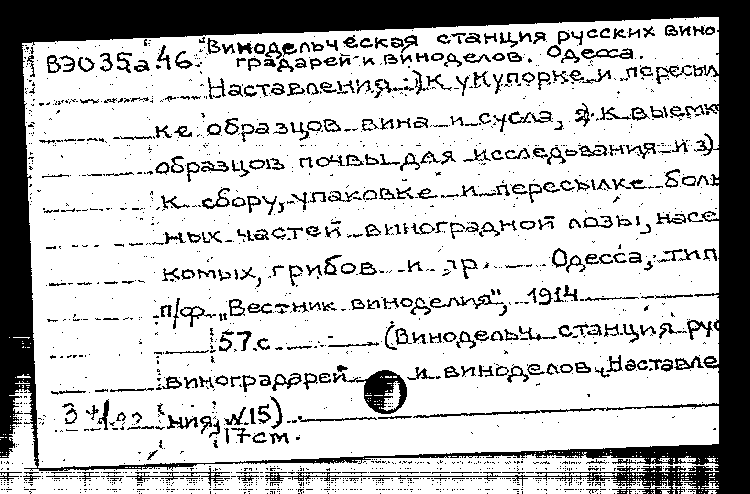 ВЭО 35а.46. "Винодельческая станция русских вино-
градарей и виноделов. Одесса.
Наставления: 1) К укупорке и пересыл
ке образцов вина и сусла, 2) к выемк
образцов почвы для исследования и 3)
к сбору, упаковке и пересылке боль
ных частей виноградной лозы, насе
комых, грибов и др. Одесса, тип
п/ф „Вестник виноделия", 1914
57.с. (Винодельч. станция рус
виноградарей и виноделов. Наставле
ния, №15).
17 ст.